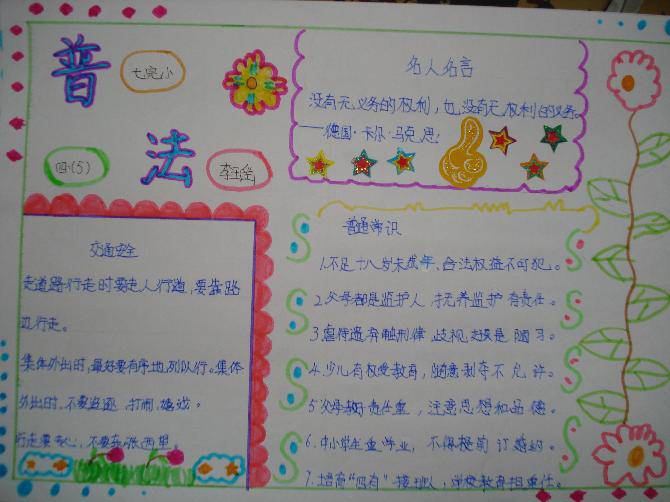 普法
七完小
四(5)
名人名言
没有无义务的权利,也没有无权利的义务。
——德国·卡尔·马克思
交通安全
走道路行走时要走人行道,要靠路
边行走。
集体外出时,最好要有序地列队行。集体
外出时,不要追逐、打闹、嬉戏。
行走要专心,不要东张西望。
普通常识
1.不足十八岁未成年、合法权益不可犯。
2.父母都是监护人,抚养监护有责任。
3.虐待遗弃触刑律,歧视
4.少儿有权受教育,随意剥夺不允许。
5.父母教子责任重,注意思想和品德。
6.中小学生重学业,不得提前订婚约。
7.培育“四有”接班人,学校教育担重任。